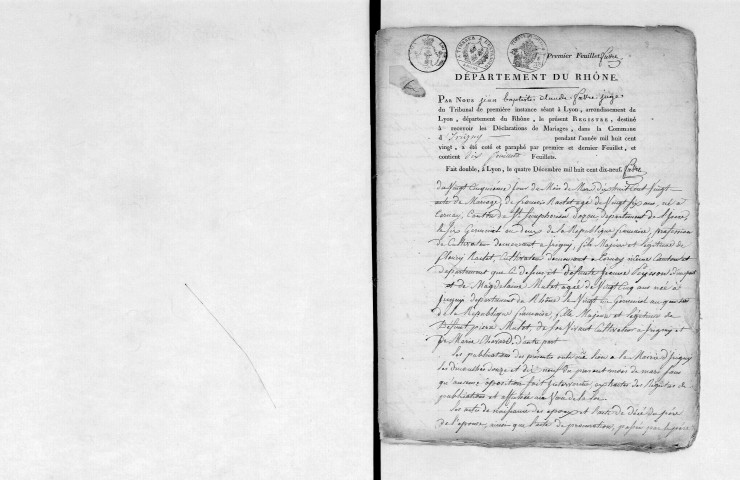 Premier Feuillet. favre
DÉPARTEMENT DU RHÔNE.
PAR NOUS jean baptiste claude favre juge
du Tribunal de première instance séant à Lyon, arrondissement du
Lyon, département du Rhône, le présent REGISTRE, destiné
à recevoir les Déclarations de Mariages, dans la Commune
d' irigny pendant l'année mil huit cent
vingt, a été coté et paraphé par premier et dernier Feuillet, et
contient Feuillets.
Fait double, à Lyon, le quatre Décembre mil huit cent dix-neuf. favre
du Vingt Cinquieme Jour du Mois de Mars dix huit Cent Vingt
acte de Mariage, de françois agé de Vingt six ans, né a
Canton de St Simphorien d'ozon departement de l'Isere
le Six Germinal an deux de la Republique francaise, profession
de Cultivateur demeurant a Irigny, fils Majeur et legitime de
fleury Cultivateur demeurant a même Canton et
departement que Ci dessus et defunte d'une part
et de Magdelaine Mulet agée de Vingt Cinq ans née a
Irigny departement du Rhône le Vingt un Germinal an
de la Republique francaise, fille Majeure et legitime de
Defunt pierre Mulet, de Son Vivant Cultivateur a Irigny et
de Marie d'autre part
les publications des presents ont été lieu a la Mairie d'Irigny
les dimanches douze et dix neuf du present mois de mars sans
qu'aucune opposition soit intervenue, extraites du Registre de
publication et affichée au Vœu de la Loi
les actes de naissance des epoux et l'acte de décé du père
de l'epouse, ainsi que l'acte de passée par le père